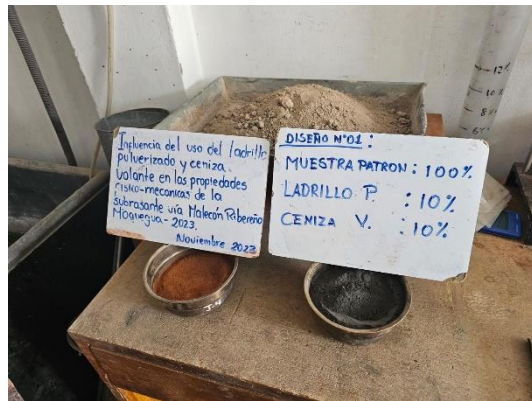 Influencia del uso del ladrillo
pulverizado y ceniza
volante en las propiedades
físiko-mecanicas de la
subrasante vía Malecón Ribereño
Moquegua - 2023.
Noviembre 2023
DISEÑO N°01 :
MUESTRA PATRON : 100%
LADRILLO P. : 10%
CENIZA V. : 10%